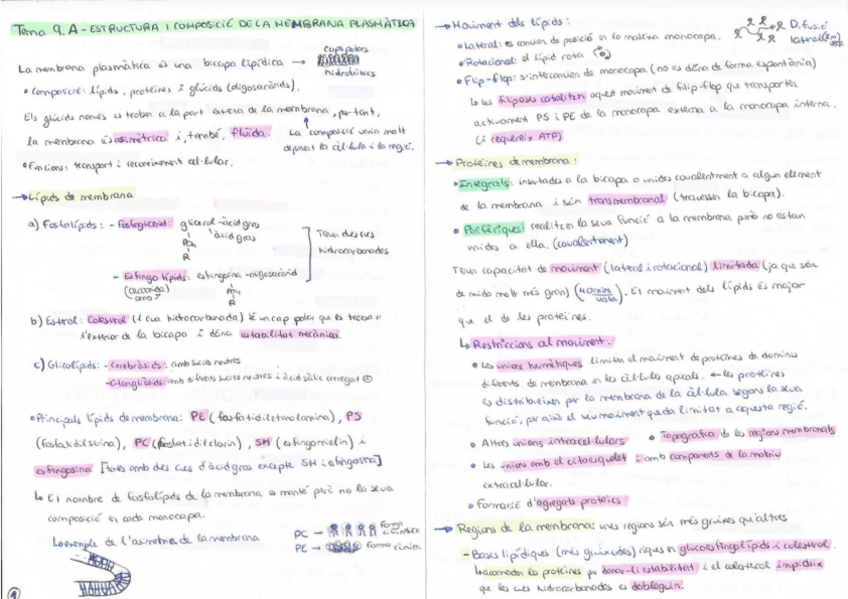 Tema 9.A - ESTRUCTURA I COMPOSICIÓ DE LA MEMBRANA PLASMÀTICA
La membrana plasmàtica és una bicapa lipídica → caps polars
hidrofòbiques
• Composició: lípids, proteïnes i glúcids (oligosacàrids).
Els glúcids només es troben a la part externa de la membrana, per tant,
la membrana és asimètrica i, també, fluïda.
La composició varia molt
depenent la cèl·lula i la regió.
• Funcions: transport i reconeixement cel·lular.
→ Lípids de membrana
a) Fosfolípids: - Fosfoglicerid: glicerol - àcid gras
àcid gras
PO4
R
Tenen dues cues
hidrocarbonades
- Esfingolípids: esfingosina - oligosacàrid
(ceramida)
PO4
R
b) Esterol: Colesterol (1 cua hidrocarbonada) té un cap polar que es troba a
l'exterior de la bicapa i dóna estabilitat mecànica.
c) Glicolípids: - Cerebròsids: amb sucre neutres
- Gangliòsids: amb diferents sucres neutres i àcid siàlic carregat ⊖
• Principals lípids de membrana: PE (fosfatidiletanolamina), PS
(fosfatidilserina), PC (fosfatidilcolina), SM (esfingomielina) i
esfingosina [tots amb dues cues d'àcid gras excepte SM i esfingosina]
↳ El nombre de fosfolípids de la membrana es manté però no la seva
composició en cada monocapa.
↳ exemple de l'asimetria de la membrana
PC → forma cilíndrica
PE → forma cònica
1
→ Moviment dels lípids:
• Lateral: es canvien de posició en la mateixa monocapa.
Difusió
lateral
• Rotacional: el lípid rota
• Flip-flop: s'intercanvien de monocapa (no es dóna de forma espontània)
↳ les flipases catalitzen aquest moviment de flip-flop que transporten
activament PS i PE de la monocapa externa a la monocapa interna.
(i requereix ATP)
→ Proteïnes de membrana:
• Integrals: insertades a la bicapa o unides covalentment a algun element
de la membrana i són transmembranal (travessen la bicapa).
• Perifèriques: realitzen la seva funció a la membrana però no estan
unides a ella. (covalentment)
Tenen capacitat de moviment (lateral i rotacional) limitada (ja que són
de mida molt més gran). El moviment dels lípids és major
que el de les proteïnes.
↳ Restriccions al moviment:
• Les unions hermètiques limiten el moviment de proteïnes de dominis
diferents de membrana en les cèl·lules apicals. ← les proteïnes
es distribueixen per la membrana de la cèl·lula segons la seva
funció, per això el seu moviment queda limitat a aquesta regió.
• Altres unions intracel·lulars • Topografia de les regions membranals
• Les unions amb el citoesquelet i amb components de la matriu
extracel·lular.
• Formació d'agregats proteics
→ Regions de la membrana: unes regions són més gruixes qu'altres
- Basses lipídiques (més gruixudes) riques en glucoesfingolípids i colesterol.
↳ acomoden les proteïnes per donar-li estabilitat i el colesterol impideix
que les cues hidrocarbonades es dobleguin.